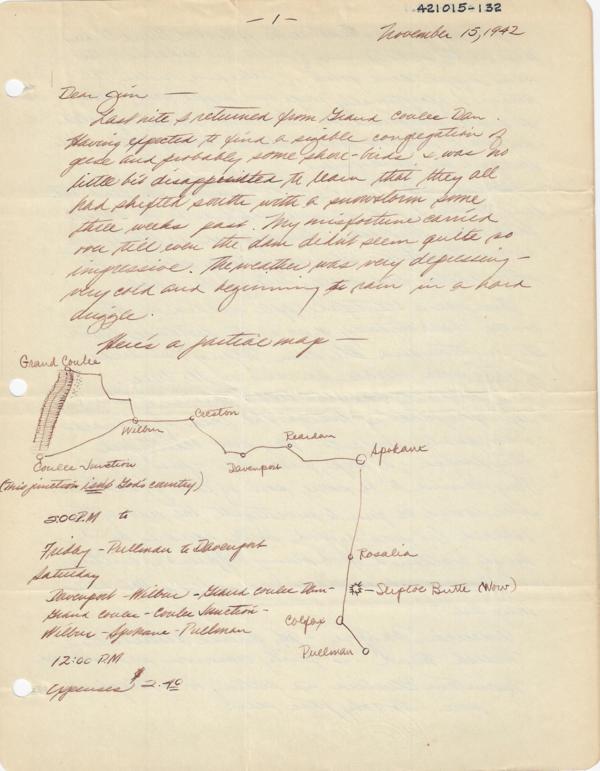 — 1 —
421015-132
November 15, 1942
Dear Jim —
Last nite I returned from Grand Coulee Dam.
Having expected to find a sizable congregation of
geese and probably some shore-birds I was no
little bit disappointed to learn that they all
had shifted south with a snowstorm some
three weeks past. My misfortune carried
over till even the dam didn't seem quite so
impressive. The weather was very depressing -
very cold and beginning to rain in a hard
drizzle.
Here's a partial map —
Grand Coulee
Wilbur
Creston
Davenport
Reardan
Spokane
Coulee Junction
(this junction isn't God's country)
Rosalia
Steptoe Butte (Wow)
Colfax
Pullman
5:00 P.M to
Friday - Pullman to Davenport
Saturday
Davenport - Wilbur - Grand Coulee Dam -
Grand Coulee - Coulee Junction -
Wilbur - Spokane - Pullman
12:00 P.M
expenses $2.40